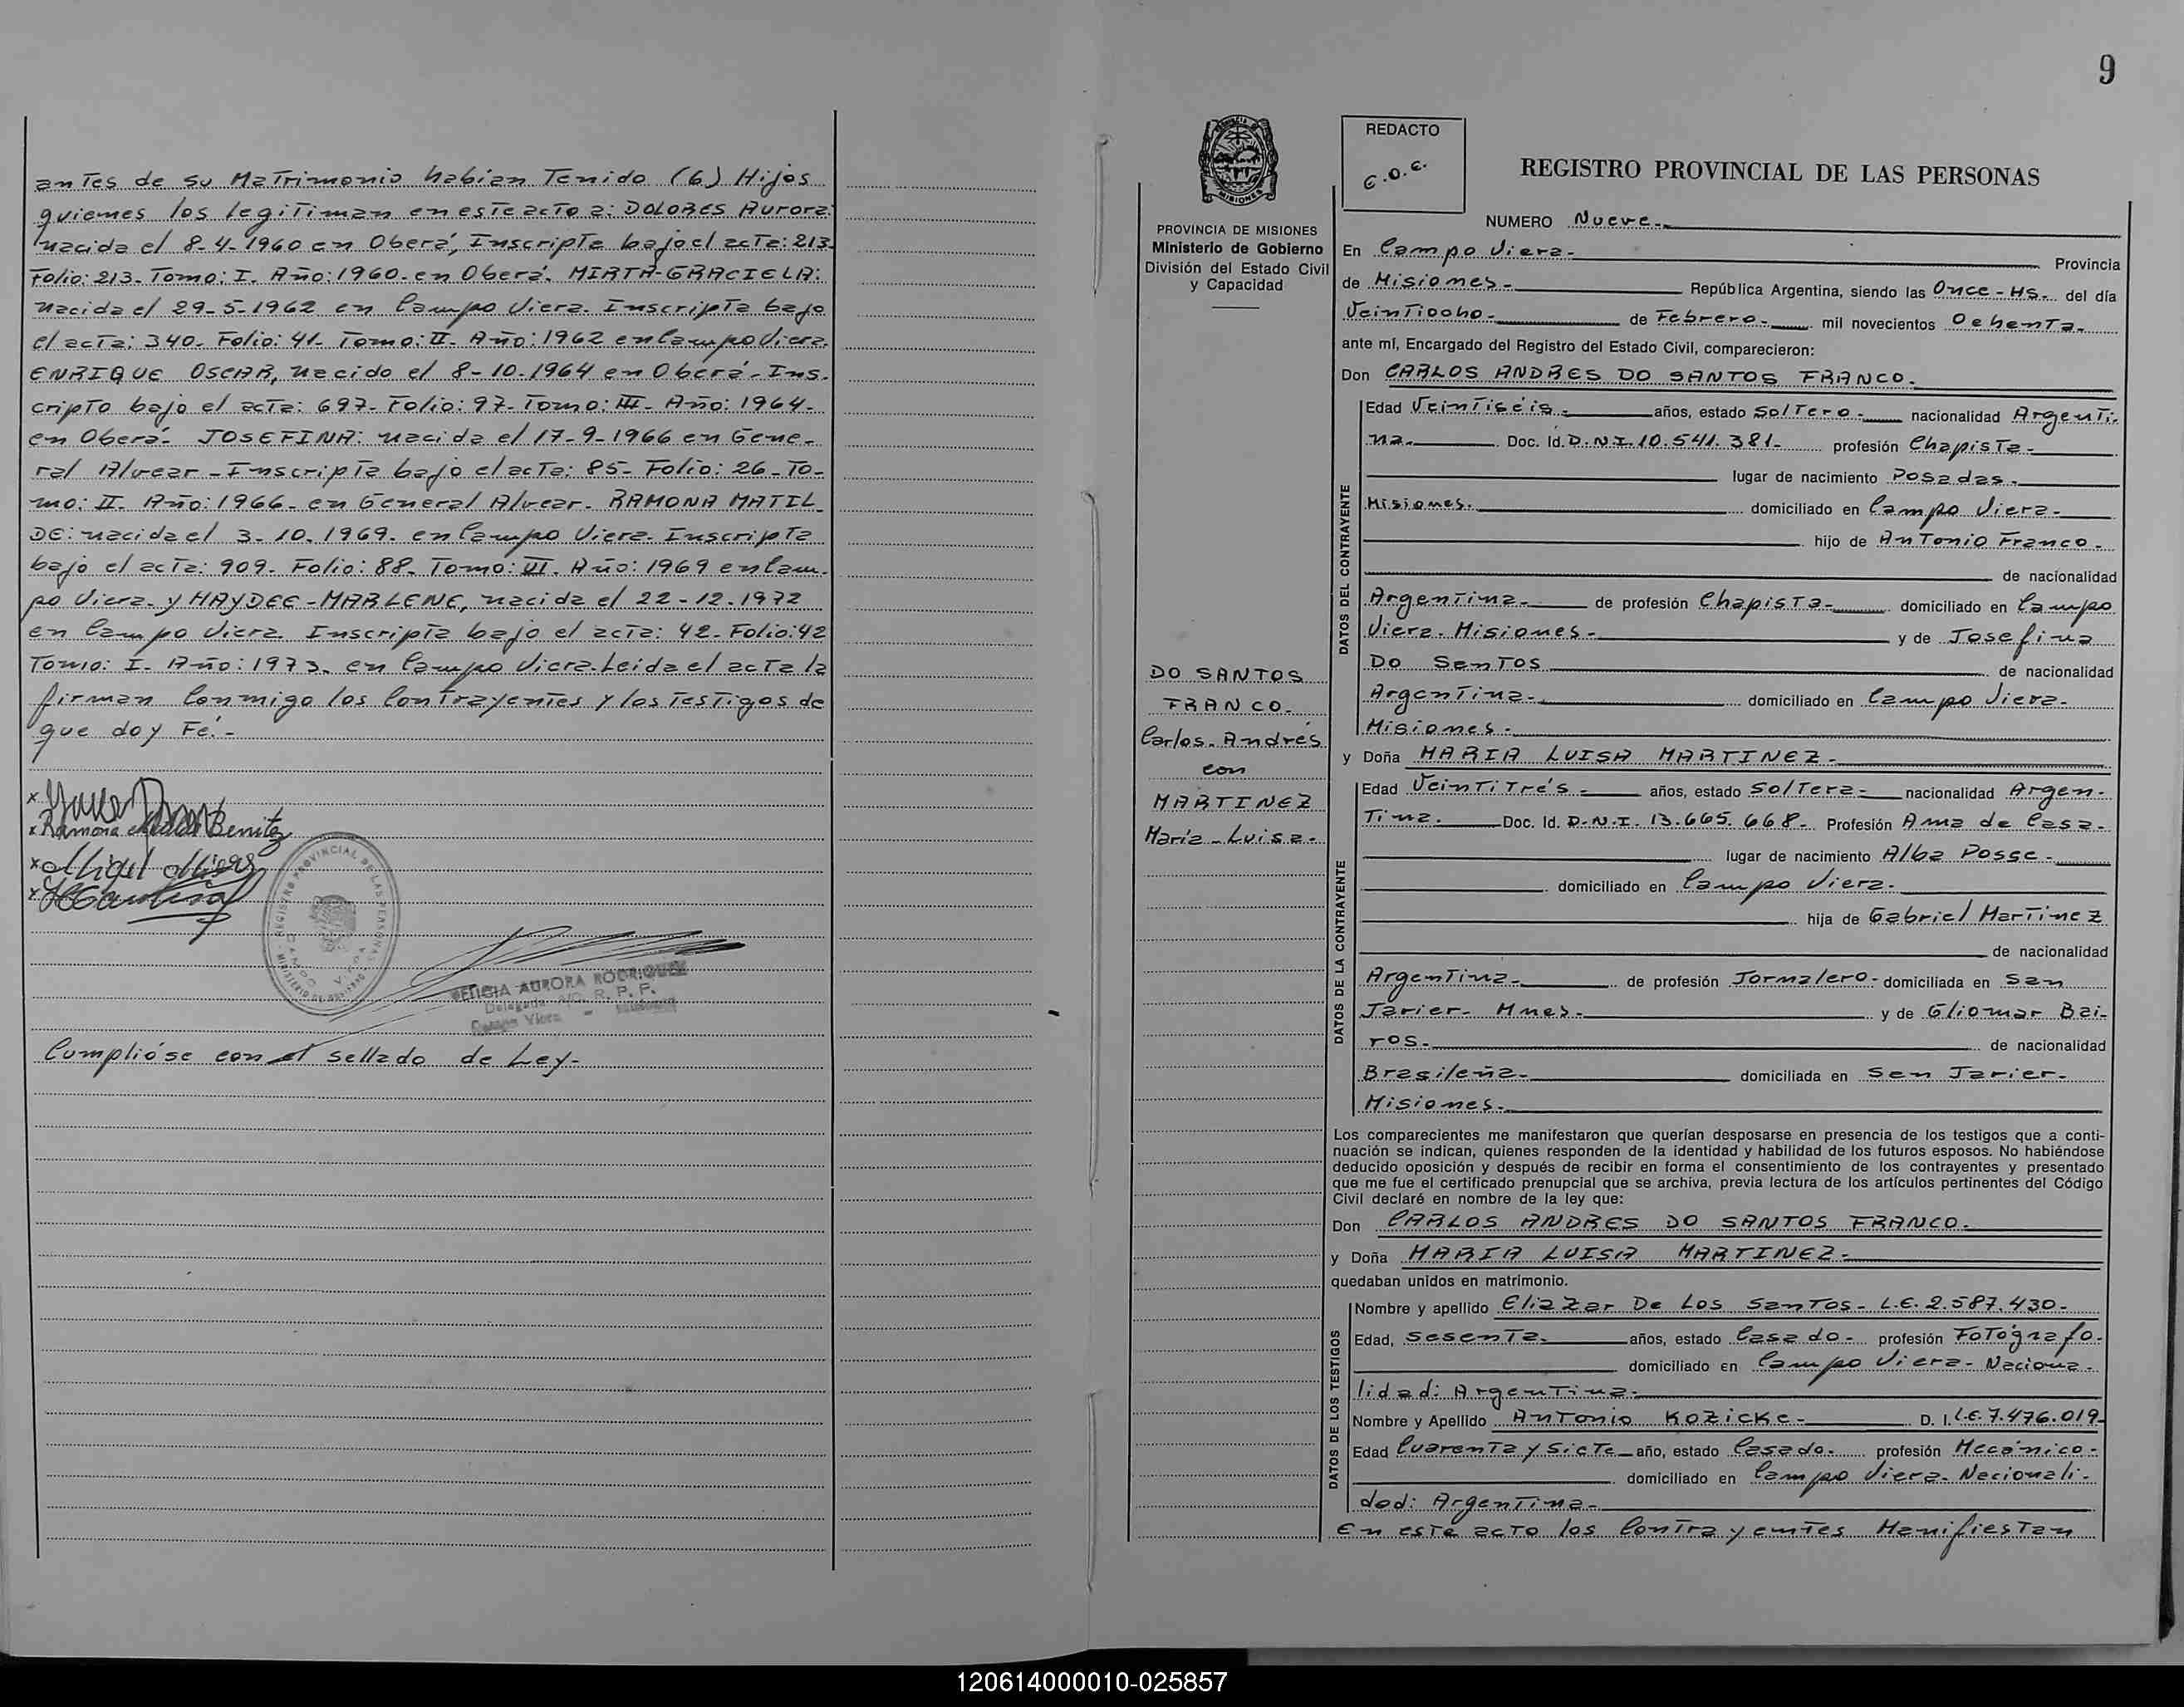 antes de su Matrimonio habian Tenido (6) Hijos
quienes los legitiman en este acto a: DOLORES Aurora:
nacida el 8-4-1960 en Oberá, Inscripta bajo el acta: 213-
Folio: 213. Tomo: I. Año: 1960. en Oberá. MIRTA-GRACIELA:
nacida el 29-5-1962 en Campo Viera. Inscripta bajo
el acta: 340. Folio: 41. Tomo: II. Año: 1962 en Campo Viera.
ENRIQUE OSCAR, nacido el 8-10-1964 en Oberá-Ins-
cripto bajo el acta: 697- Folio: 97- Tomo: III- Año: 1964-
en Oberá- JOSEFINA: nacida el 17-9-1966 en Gene-
ral Alvear - Inscripta bajo el acta: 85- Folio: 26-To-
mo: II. Año: 1966. en General Alvear. RAMONA MATIL-
DE: nacida el 3.10.1969. en Campo Viera. Inscripta
bajo el acta: 909. Folio: 88. Tomo: VI. Año: 1969 en Cam-
po Viera- y HAYDEE-MARLENE, nacida el 22-12-1972
en Campo Viera Inscripta bajo el acta: 42- Folio: 42
Tomo: I- Año: 1973. en Campo Viera. Leida el acta la
firman Conmigo los Contrayentes y los Testigos de
que doy Fé.-
x
x Ramona Benitez
x Miguel
x
REGISTRO PROVINCIAL DE LAS PERSONAS
AURORA RODRIGUEZ
Delegada R. P. P.
Campo Viera
Cumplióse con el sellado de Ley-
9
REDACTO
E.O.E.
REGISTRO PROVINCIAL DE LAS PERSONAS
PROVINCIA DE MISIONES
Ministerio de Gobierno
División del Estado Civil
y Capacidad
DO SANTOS
FRANCO-
Carlos-Andrés
con
MARTINEZ
María-Luisa-
NUMERO Nueve-
En Campo Viera- Provincia
de Misiones- República Argentina, siendo las Once-Hs- del día
Veintiocho- de Febrero- mil novecientos Ochenta-
ante mí, Encargado del Registro del Estado Civil, comparecieron:
Don CARLOS ANDRES DO SANTOS FRANCO-
DATOS DEL CONTRAYENTE
Edad Veintiséis- años, estado Soltero- nacionalidad Argenti-
na- Doc. Id. D.N.I. 10.541.381- profesión Chapista-
lugar de nacimiento Posadas-
Misiones. domiciliado en Campo Viera-
hijo de Antonio Franco-
de nacionalidad
Argentina- de profesión Chapista- domiciliado en Campo
Viera- Misiones- y de Josefina
Do Santos de nacionalidad
Argentina- domiciliado en Campo Viera-
Misiones-
y Doña MARIA LUISA MARTINEZ-
DATOS DE LA CONTRAYENTE
Edad Veintitrés- años, estado Soltera- nacionalidad Argen-
tina- Doc. Id. D.N.I. 13.665.668- Profesión Ama de Casa-
lugar de nacimiento Alba Posse-
domiciliado en Campo Viera-
hija de Gabriel Martinez
de nacionalidad
Argentina- de profesión Jornalero- domiciliada en San
Javier- Mnes- y de Gliomar Bai-
ros- de nacionalidad
Brasileña- domiciliada en San Javier-
Misiones-
Los comparecientes me manifestaron que querían desposarse en presencia de los testigos que a conti-
nuación se indican, quienes responden de la identidad y habilidad de los futuros esposos. No habiéndose
deducido oposición y después de recibir en forma el consentimiento de los contrayentes y presentado
que me fue el certificado prenupcial que se archiva, previa lectura de los artículos pertinentes del Código
Civil declaré en nombre de la ley que:
Don CARLOS ANDRES DO SANTOS FRANCO-
y Doña MARIA LUISA MARTINEZ-
quedaban unidos en matrimonio.
DATOS DE LOS TESTIGOS
Nombre y apellido Eliazar De Los Santos- L.E. 2.587.430-
Edad, Sesenta- años, estado Casado- profesión Fotógrafo-
domiciliado en Campo Viera- Naciona-
lidad: Argentina-
Nombre y Apellido Antonio Kozicke- D. I. L.E. 7.476.019-
Edad Cuarenta y Siete año, estado Casado- profesión Mecánico-
domiciliado en Campo Viera- Nacionali-
dad: Argentina-
En este acto los Contrayentes Manifiestan
120614000010-025857